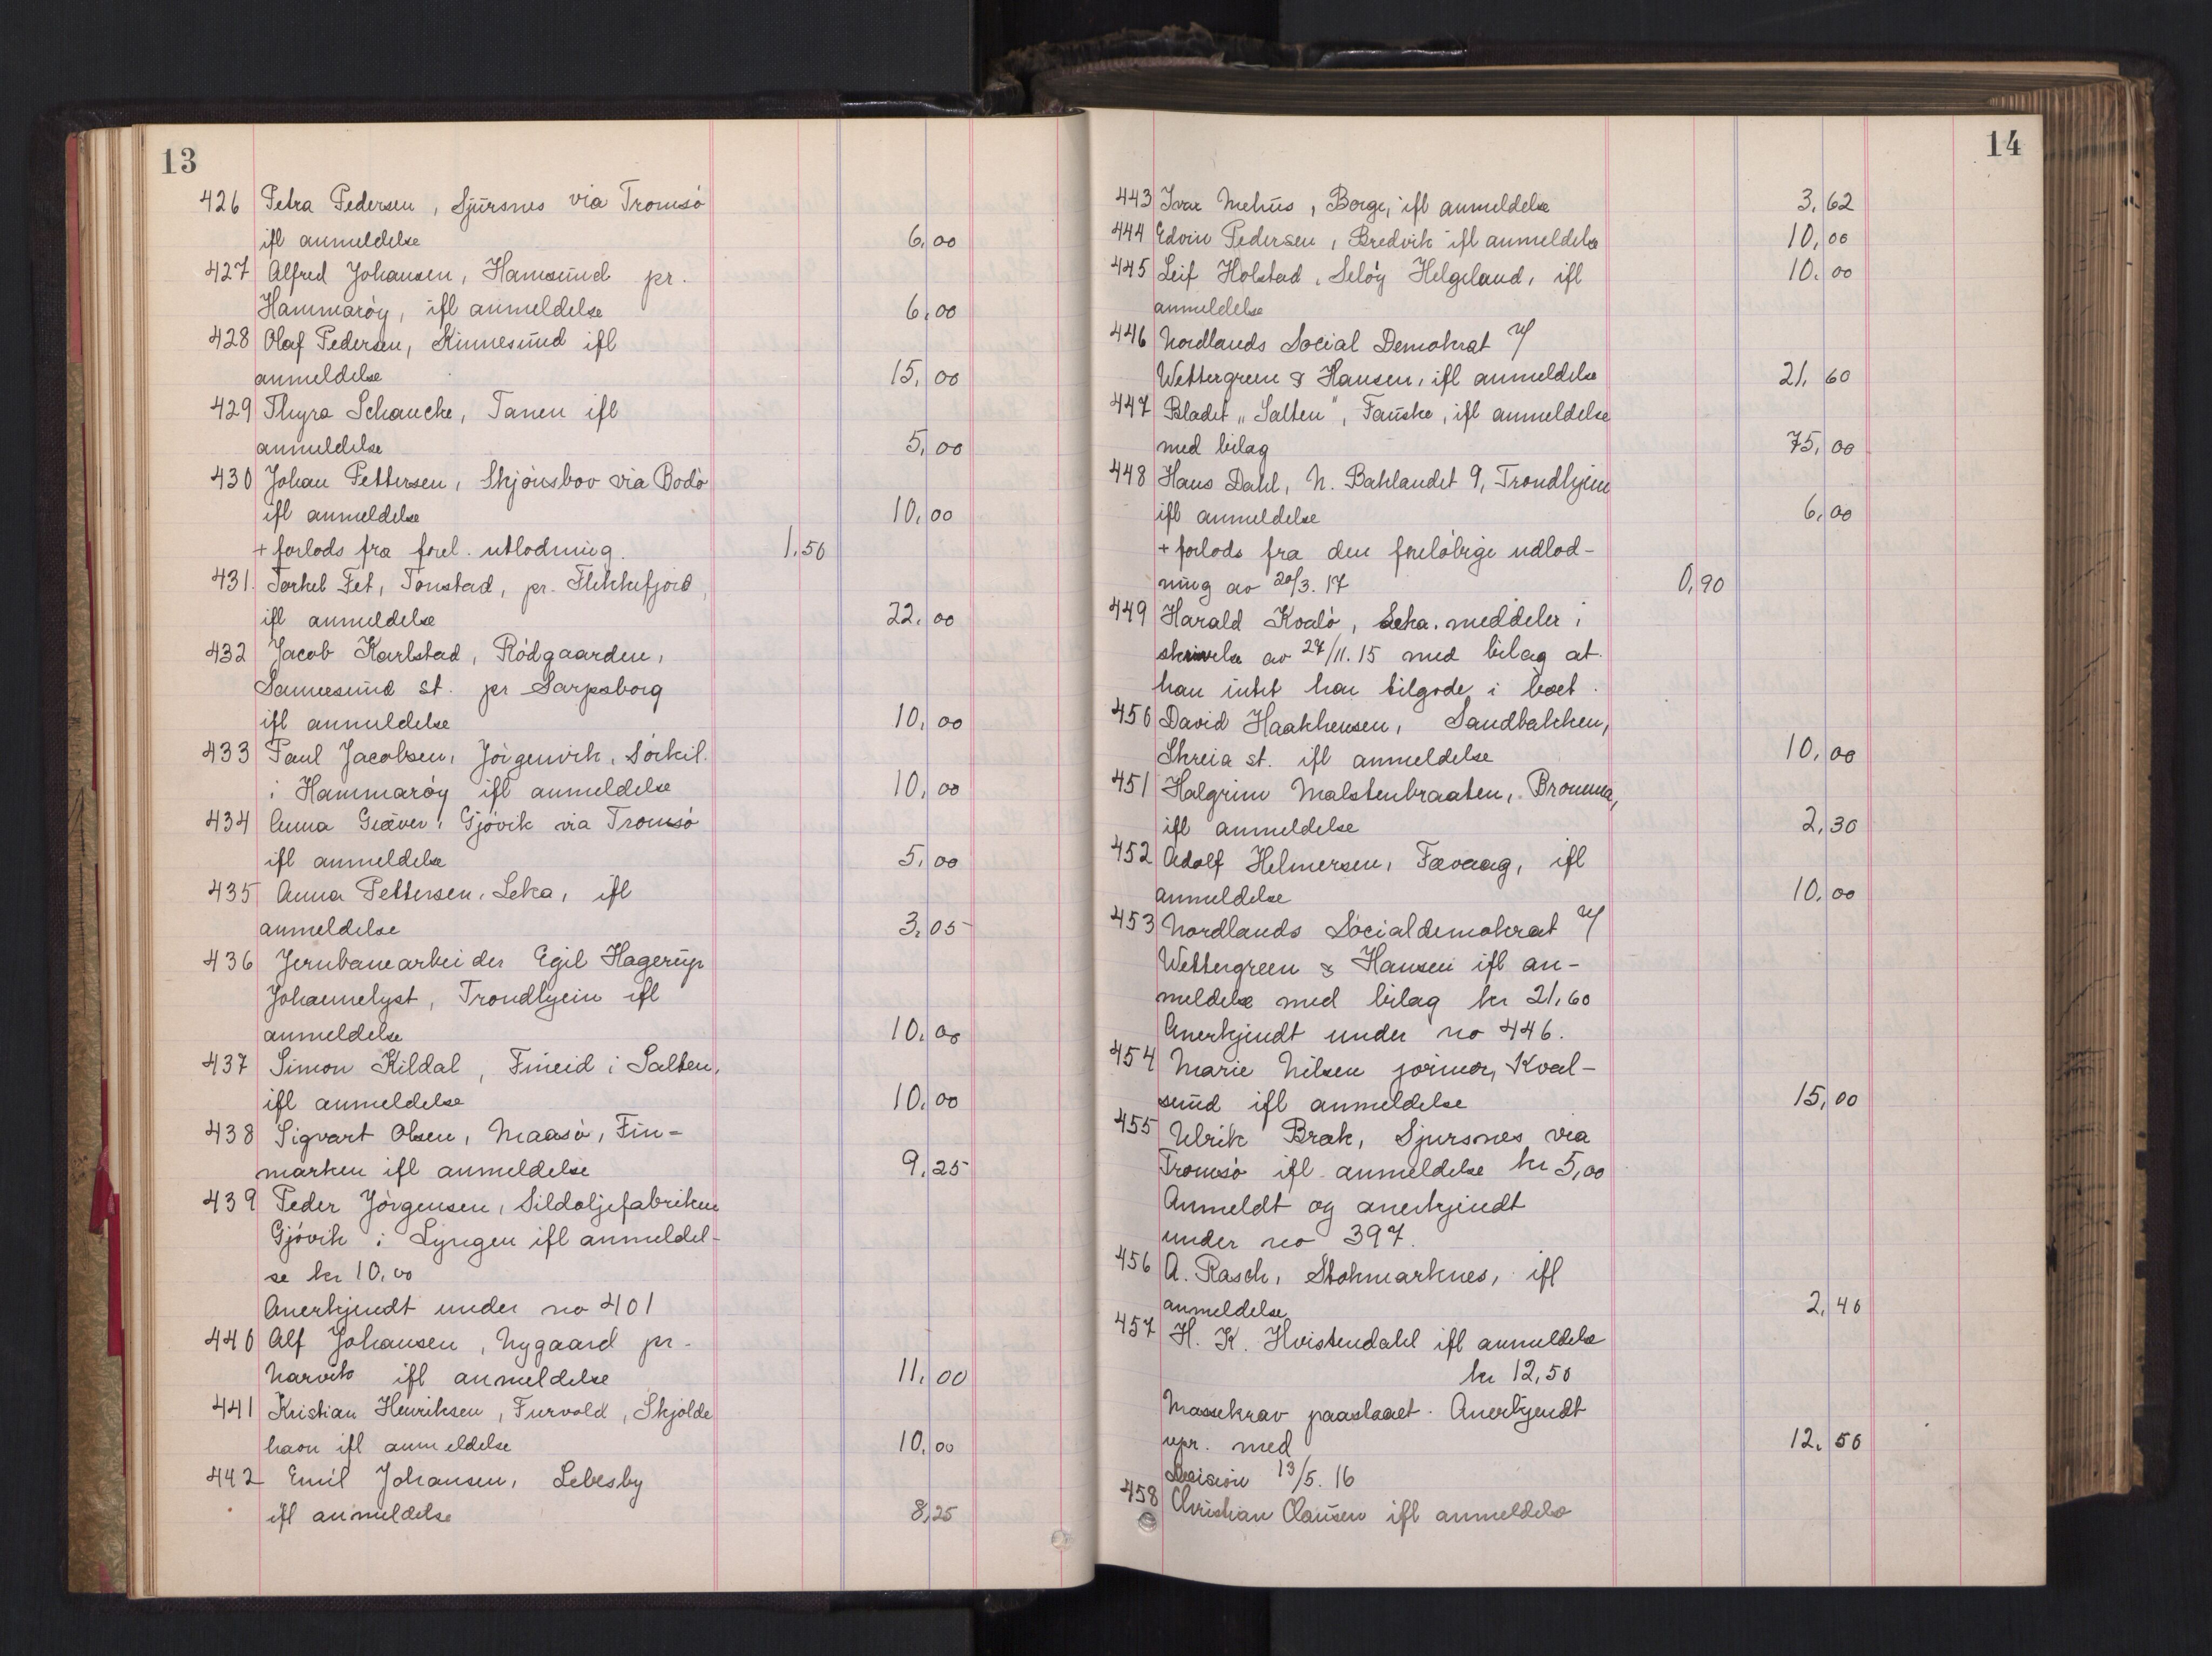 13
426 Petra Pedersen, Sjursnes via Tromsö
ifl anmeldelse 6,00
427 Alfred Johansen, Hamsund pr.
Hammaröy, ifl anmeldelse 6,00
428 Olaf Pedersen, Kinnesund ifl
anmeldelse 15,00
429 Thyra Schancke, Tanen ifl
anmeldelse 5,00
430 Johan Pettersen, Skjönsbov via Bodö
ifl anmeldelse 10,00
+ forlods fra forel. utlodning. 1,50
431. Torkel Fet, Tonstad, pr. Flekkefjord,
ifl anmeldelse 22,00
432 Jacob Karlstad, Rödgaarden,
Sannesund st. pr Sarpsborg
ifl anmeldelse 10,00
433 Paul Jacobsen, Jörgenvik, Sörkil.
i Hammaröy ifl anmeldelse 10,00
434 Anna Græver, Gjövik via Tromsö
ifl anmeldelse 5,00
435 Anna Pettersen, Leka, ifl
anmeldelse 3,05
436 Jernbanearbeider Egil Hagerup
Johannelyst, Trondhjem ifl
anmeldelse 10,00
437 Simon Kildal, Fineid i Salten,
ifl anmeldelse 10,00
438 Sigvart Olsen, Maasö, Fin-
marken ifl anmeldelse 9,25
439 Peder Jörgensen, Sildoljefabriken
Gjövik i Lyngen ifl anmeldel-
se kr 10,00
Anerkjendt under no 401
440 Alf Johansen, Nygaard pr.
Narvik ifl anmeldelse 11,00
441 Kristian Henriksen, Furvold, Skjolde
havn ifl anmeldelse 10,00
442 Emil Johansen, Lebesby
ifl anmeldelse 8,25
14
443 Ivar Mehus, Borge, ifl anmeldelse 3,62
444 Edvin Pedersen, Bredvik ifl anmeldelse 10,00
445 Leif Holstad, Selöy Helgeland, ifl 10,00
anmeldelse
446 Nordlands Social Demokrat v/
Wettergreen & Hansen, ifl anmeldelse 21,60
447 Bladet "Salten", Fauske, ifl anmeldelse
med bilag 75,00
448 Hans Dahl, N. Baklandet 9, Trondhjem
ifl anmeldelse 6,00
+ forlods fra den forelöbige udlod-
ning av 20/3. 17 0,90
449 Harald Kvalö, Leka. meddeler i
skrivelse av 27/11. 15 med bilag at
han intet har tilgode i boet.
450 David Haakkensen, Sandbakken,
Skreia st. ifl anmeldelse 10,00
451 Halgrim Malstenbraaten, Bromma,
ifl anmeldelse 2,30
452 Adolf Helmersen, Fævaag, ifl
anmeldelse 10,00
453 Nordlands Socialdemokrat v/
Wettergreen & Hansen ifl an-
meldelse med bilag kr 21,60
Anerkjendt under no 446.
454 Marie Nilsen jormor, Kval-
sund ifl anmeldelse 15,00
455 Ulrik Bræk, Sjursnes via
Tromsö ifl. anmeldelse kr 5,00
Anmeldt og anerkjendt
under no 397.
456 A. Rasch, Stokmarknes, ifl
anmeldelse 2,40
457 H. K. Hvistendahl ifl anmeldelse
kr 12,50
Massekrav paastaaet. Anerkjendt
upr. med 12,50
Decision 13/5. 16
458 Christian Clausen ifl anmeldelse